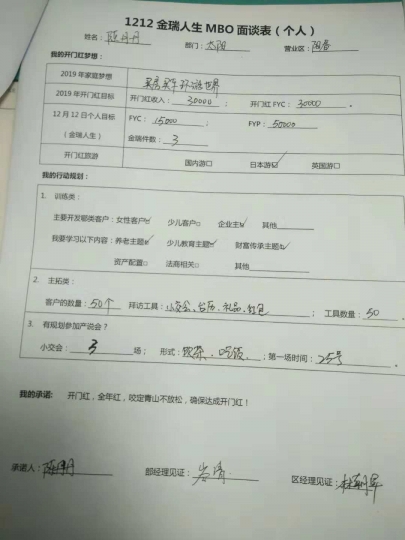 1212 金瑞人生 MBO 面谈表（个人）
姓名： 陈丹丹 部门： 太阳 营业区： 阳春
我的开门红梦想：
2019 年家庭梦想 买房买车环游世界
2019 年开门红目标 开门红收入： 30000 ； 开门红 FYC： 30000 。
12 月 12 日个人目标（金瑞人生） FYC： 15000 ； FYP： 50000
金瑞件数： 3
开门红旅游 国内游□ 日本游☑ 英国游□
我的行动规划：
1. 训练类：
主要开发哪类客户：女性客户☑ 少儿客户□ 企业主☑ 其他
我要学习以下内容：养老主题☑ 少儿教育主题☑ 财富传承主题☑
资产配置□ 法商相关□ 其他
2. 主拓类：
客户的数量： 50个 拜访工具： 小交会、台历、礼品、红包 ； 工具数量： 50 。
3. 有规划参加产说会？
小交会： 3 场； 形式： 饮茶、吃饭 ；第一场时间： 25号 。
我的承诺： 开门红，全年红，咬定青山不放松，确保达成开门红！
承诺人： 陈丹丹 部经理见证： 区经理见证：